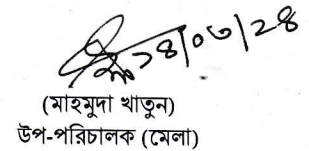 ১৪/০৩/২৪
(মাহমুদা খাতুন)
উপ-পরিচালক (মেলা)